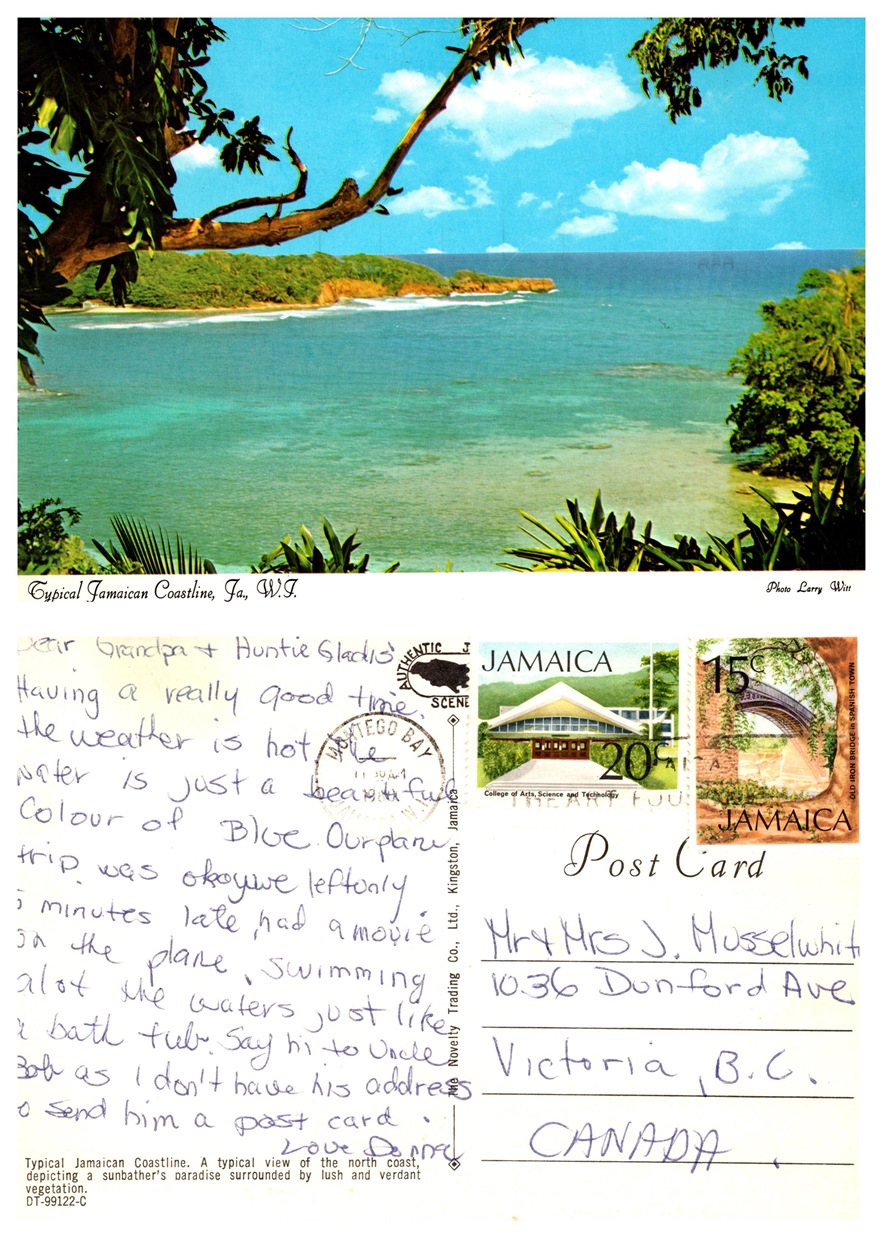 Typical Jamaican Coastline, Ja., W.I.
Photo Larry Witt
Dear Grandpa + Huntie Gladis
Having a really good time,
the weather is hot the
water is just a beautiful
Colour of Blue. Our plane
trip was okay, we left only
5 minutes late, had a movie
on the plane, swimming
alot the waters just like
a bath tub. Say hi to Uncle
Bob as I don't have his address
to send him a post card.
Love Donna
AUTHENTIC J
SCENE
MONTEGO BAY
The Novelty Trading Co., Ltd., Kingston, Jamaica
JAMAICA
20c
College of Arts, Science and Technology
15c
OLD IRON BRIDGE in SPANISH TOWN
JAMAICA
Post Card
Mr + Mrs J. Musselwhit
1036 Dunford Ave
Victoria, B.C.
CANADA.
Typical Jamaican Coastline. A typical view of the north coast,
depicting a sunbather's paradise surrounded by lush and verdant
vegetation.
DT-99122-C